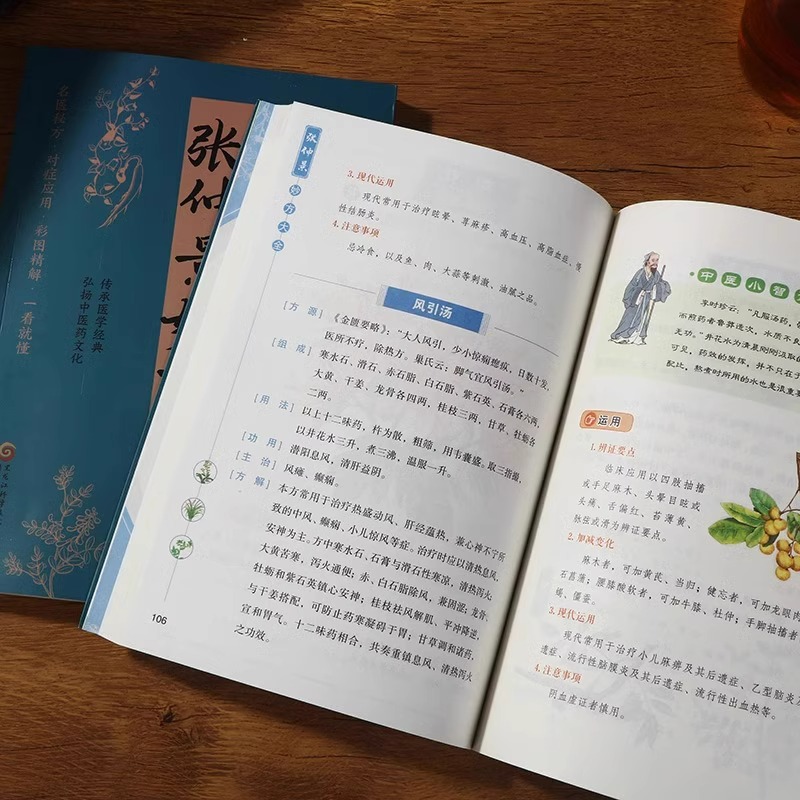 名医秘方·对症应用·彩图精解·一看就懂
张仲景
传承医学经典
弘扬中医药文化
张仲景
妙方大全
3.现代运用
现代常用于治疗眩晕、荨麻疹、高血压、高脂血症、慢
性结肠炎。
4.注意事项
忌冷食，以及鱼、肉、大蒜等刺激、油腻之品。
风引汤
[方源]《金匮要略》：“大人风引，少小惊痫瘛疭，日数十发，
医所不疗，除热方。巢氏云：脚气宜风引汤。”
[组成]寒水石、滑石、赤石脂、白石脂、紫石英、石膏各六两，
大黄、干姜、龙骨各四两，桂枝三两，甘草、牡蛎各
二两。
[用法]以上十二味药，杵为散，粗筛，用韦囊盛。取三指撮，
以井花水三升，煮三沸，温服一升。
[功用]潜阳息风，清肝益阴。
[主治]风瘫、癫痫。
[方解]本方常用于治疗热盛动风、肝经蕴热，兼心神不宁所
致的中风、癫痫、小儿惊风等症。治疗时应以清热息风、
安神为主。方中寒水石、石膏与滑石性寒凉，清热泻火
大黄苦寒，泻火通便；赤、白石脂除风，兼固涩；龙骨、
牡蛎和紫石英镇心安神；桂枝祛风解肌，平冲降逆，
与干姜搭配，可防止药寒凝碍于胃；甘草调和诸药，
宣和胃气。十二味药相合，共奏重镇息风、清热泻火
之功效。
106
中医小智
李时珍云：“凡服汤药，
而煎药者鲁莽造次，水质不良
无功。”井花水为清晨刚刚汲取的
可见，药效的发挥，并不只在于
配比，熬煮时所用的水也是很重要
运用
1.辨证要点
临床应用以四肢抽搐
或手足麻木、头晕目眩或
头痛、舌偏红、苔薄黄、
脉弦或滑为辨证要点。
2.加减变化
麻木者，可加黄芪、当归；健忘者，可加龙眼肉
石菖蒲；腰膝酸软者，可加牛膝、杜仲；手脚抽搐者
蝎、僵蚕。
3.现代运用
现代常用于治疗小儿麻痹及其后遗症、乙型脑炎及
遗症、流行性脑膜炎及其后遗症、流行性出血热等。
4.注意事项
阴血虚证者慎用。